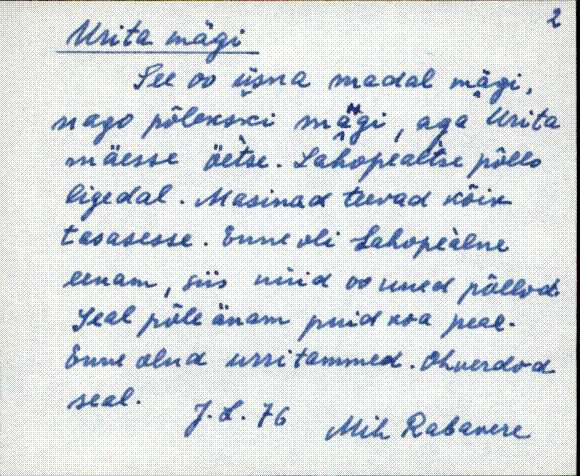 2
Urita mägi
See oo üsna madal mägi,
nago põlekski mägi, aga Urita
mäesse öetse. Lahopealtse põllo
ligedal. Masinad teevad kõik
tasasesse. Enne oli Lahopealne
eenam, siis nüid oo uued põllod.
Seal põle änam puid koa peal.
Enne olnd urritammed. Ohverdod
seal.
J. L. 76
Mih Rabavere